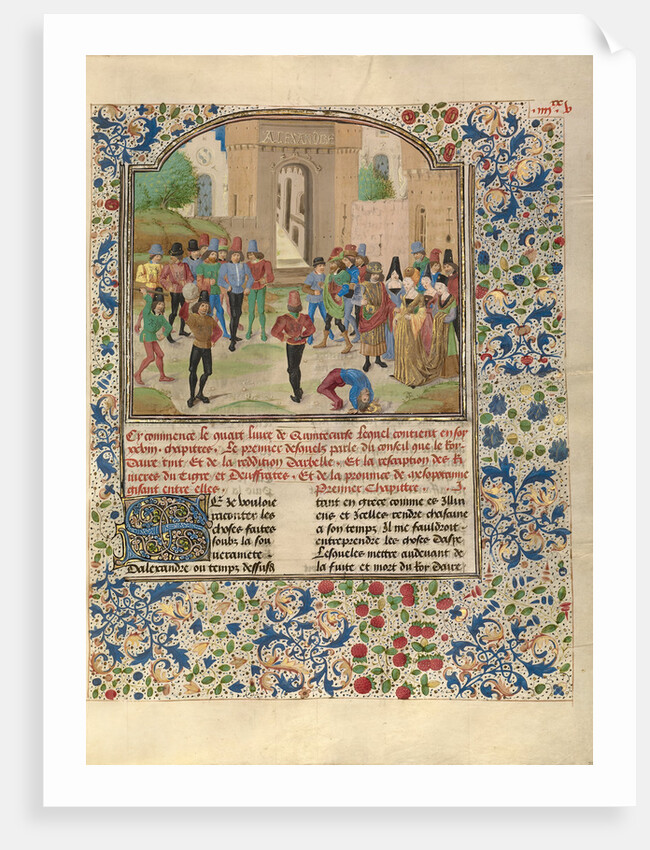 .iiii.xx v
ALEXANDRE
Cy commence le quart livre de Quinte curse Lequel contient en soy
xxviii. chapitres. Le premier desquels parle du conseil que le Roy
Daire tint Et de la reddition Darbelle. Et la rescription des Ri
vieres du Tigre et Deuffrates. Et de la province de mesopotamie
gisant entre elles.
Premier Chapitre.
SE Je vouloie
raconter les
choses faites
soubz la sou
verainete
Dalexandre ou temps dessusd
tant en grece comme es Illiri
ens et Icelles rendre chascune
a son temps Il me fauldroit
entreprendre les choses Dasye
Lesqueles mettre audevant de
la fuite et mort du Roy Daire